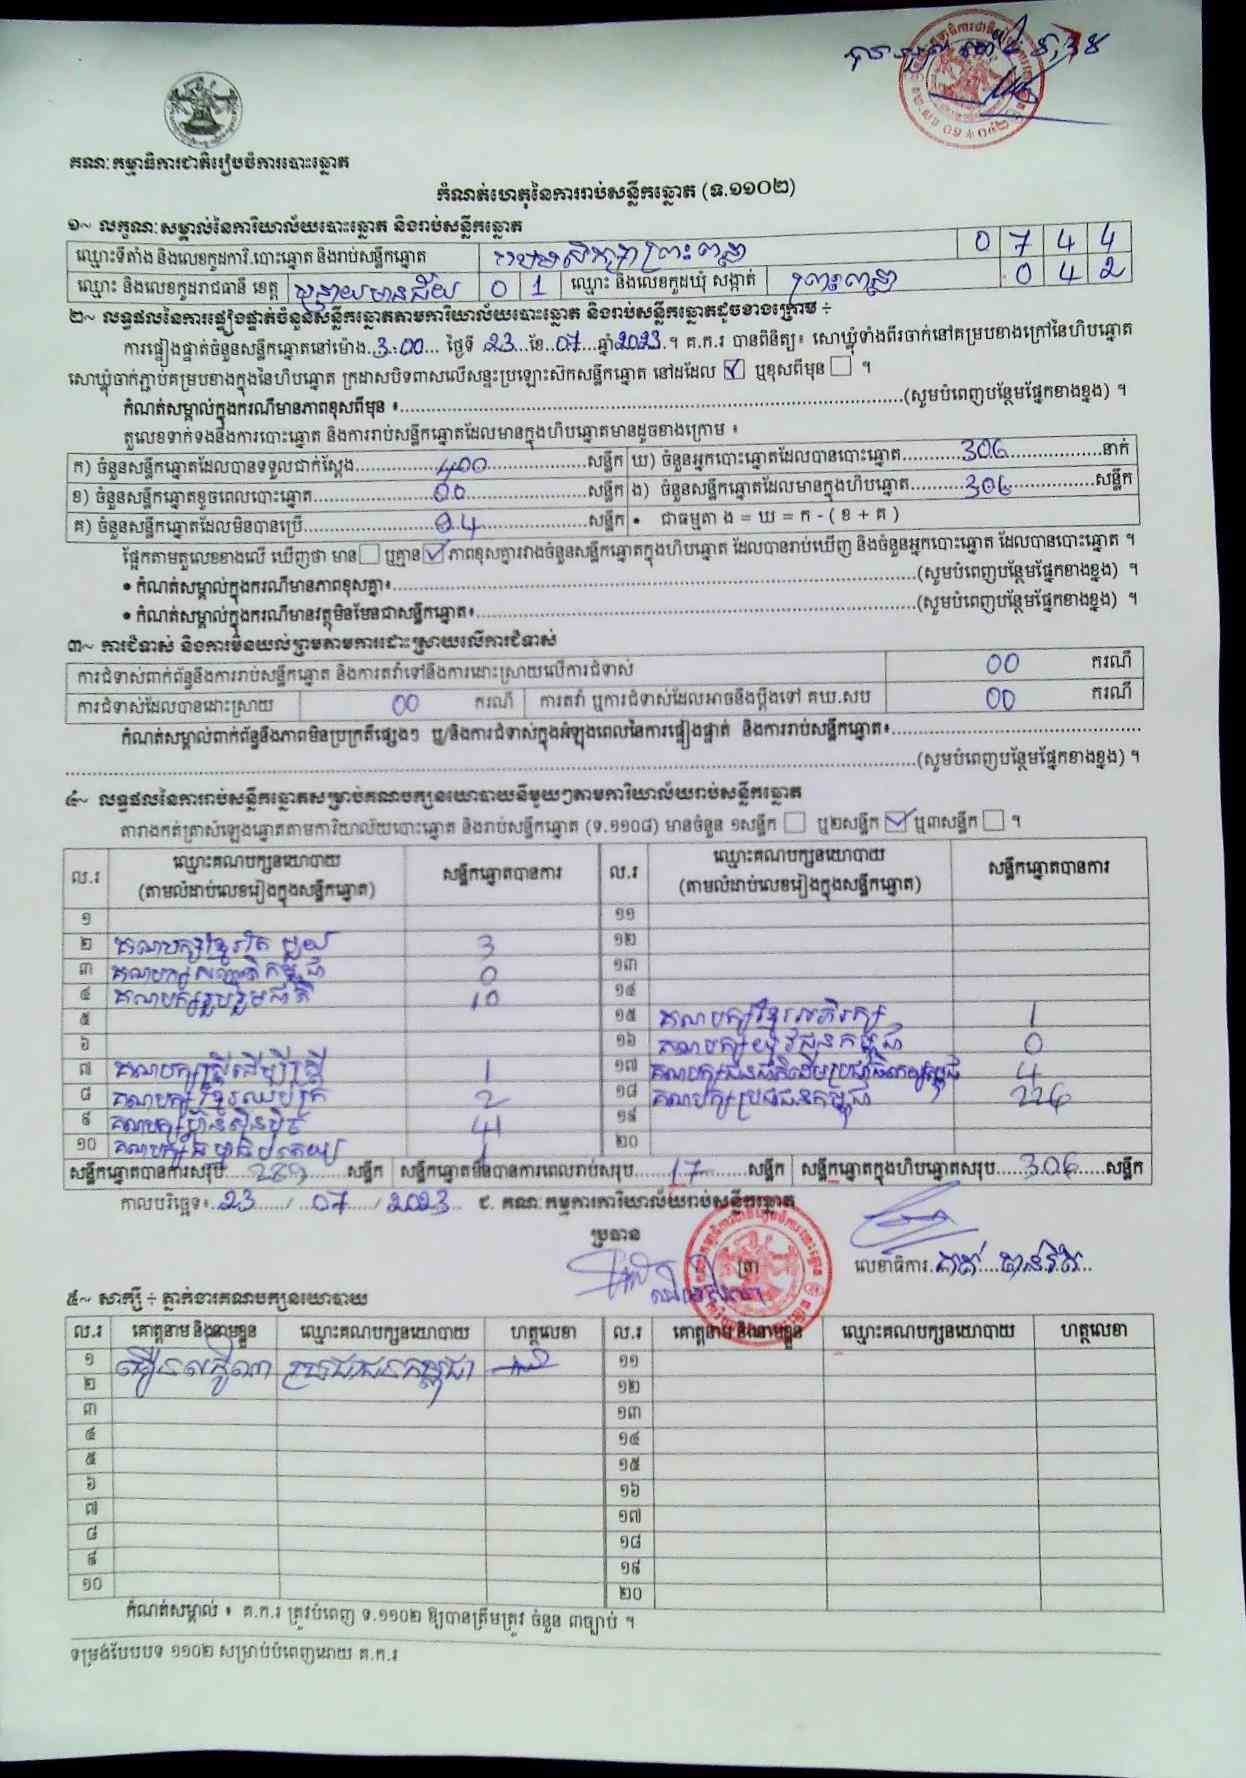 គណៈកម្មាធិការជាតិរៀបចំការបោះឆ្នោត
កំណត់ហេតុនៃការរាប់សន្លឹកឆ្នោត (ទ.១១០២)
១~ លក្ខណៈសម្គាល់នៃការិយាល័យបោះឆ្នោត និងរាប់សន្លឹកឆ្នោត
ឈ្មោះទីតាំង និងលេខកូដការិ.បោះឆ្នោត និងរាប់សន្លឹកឆ្នោត ព្រះពន្លា 0 7 4 4
ឈ្មោះ និងលេខកូដរាជធានី ខេត្ត បន្ទាយមានជ័យ 0 1 ឈ្មោះ និងលេខកូដឃុំ សង្កាត់ ព្រះពន្លា 0 4 2
២~ លទ្ធផលនៃការផ្ទៀងផ្ទាត់ចំនួនសន្លឹកឆ្នោតតាមការិយាល័យបោះឆ្នោត និងរាប់សន្លឹកឆ្នោតដូចខាងក្រោម ÷
ការផ្ទៀងផ្ទាត់ចំនួនសន្លឹកឆ្នោតនៅម៉ោង.3.00... ថ្ងៃទី .23...ខែ..07....ឆ្នាំ2023.។ គ.ក.រ បានពិនិត្យ៖ សោឃ្លុំទាំងពីរចាក់នៅគម្របខាងក្រៅនៃហិបឆ្នោត
សោឃ្លុំចាក់ភ្ជាប់គម្របខាងក្នុងនៃហិបឆ្នោត ក្រដាសបិទពាសលើសន្ទះប្រឡោះស៊កសន្លឹកឆ្នោត នៅដដែល ☑ ឬខុសពីមុន ☐ ។
កំណត់សម្គាល់ក្នុងករណីមានភាពខុសពីមុន ៖..........(សូមបំពេញបន្ថែមផ្នែកខាងខ្នង) ។
តួលេខទាក់ទងនឹងការបោះឆ្នោត និងការរាប់សន្លឹកឆ្នោតដែលមានក្នុងហិបឆ្នោតមានដូចខាងក្រោម ៖
ក) ចំនួនសន្លឹកឆ្នោតដែលបានទទួលជាក់ស្តែង......400......សន្លឹក ឃ) ចំនួនអ្នកបោះឆ្នោតដែលបានបោះឆ្នោត......306......នាក់
ខ) ចំនួនសន្លឹកឆ្នោតខូចពេលបោះឆ្នោត......00......សន្លឹក ង) ចំនួនសន្លឹកឆ្នោតដែលមានក្នុងហិបឆ្នោត......306......សន្លឹក
គ) ចំនួនសន្លឹកឆ្នោតដែលមិនបានប្រើ......94......សន្លឹក • ជាធម្មតា ង = ឃ = ក - ( ខ + គ )
ផ្អែកតាមតួលេខខាងលើ ឃើញថា មាន ☐ ឬគ្មាន ☑ ភាពខុសគ្នារវាងចំនួនសន្លឹកឆ្នោតក្នុងហិបឆ្នោត ដែលបានរាប់ឃើញ និងចំនួនអ្នកបោះឆ្នោត ដែលបានបោះឆ្នោត ។
• កំណត់សម្គាល់ក្នុងករណីមានភាពខុសគ្នា៖..........(សូមបំពេញបន្ថែមផ្នែកខាងខ្នង) ។
• កំណត់សម្គាល់ក្នុងករណីមានវត្ថុមិនមែនជាសន្លឹកឆ្នោត៖..........(សូមបំពេញបន្ថែមផ្នែកខាងខ្នង) ។
៣~ ការជំទាស់ និងការមិនយល់ព្រមតាមការដោះស្រាយលើការជំទាស់
ការជំទាស់ពាក់ព័ន្ធនឹងការរាប់សន្លឹកឆ្នោត និងការតវ៉ាទៅនឹងការដោះស្រាយលើការជំទាស់ 00 ករណី
ការជំទាស់ដែលបានដោះស្រាយ 00 ករណី ការតវ៉ា ឬការជំទាស់ដែលអាចនឹងប្តឹងទៅ គឃ.សប 00 ករណី
កំណត់សម្គាល់ពាក់ព័ន្ធនឹងភាពមិនប្រក្រតីផ្សេងៗ ឬ/និងការជំទាស់ក្នុងអំឡុងពេលនៃការផ្ទៀងផ្ទាត់ និងការរាប់សន្លឹកឆ្នោត៖..........
..........(សូមបំពេញបន្ថែមផ្នែកខាងខ្នង) ។
៤~ លទ្ធផលនៃការរាប់សន្លឹកឆ្នោតសម្រាប់គណបក្សនយោបាយនីមួយៗតាមការិយាល័យរាប់សន្លឹកឆ្នោត
តារាងកត់ត្រាសំឡេងឆ្នោតតាមការិយាល័យបោះឆ្នោត និងរាប់សន្លឹកឆ្នោត (ទ.១១០៨) មានចំនួន ១សន្លឹក ☐ ឬ២សន្លឹក ☑ ឬ៣សន្លឹក ☐ ។
ល.រ ឈ្មោះគណបក្សនយោបាយ (តាមលំដាប់លេខរៀងក្នុងសន្លឹកឆ្នោត) សន្លឹកឆ្នោតបានការ ល.រ ឈ្មោះគណបក្សនយោបាយ (តាមលំដាប់លេខរៀងក្នុងសន្លឹកឆ្នោត) សន្លឹកឆ្នោតបានការ
១ ១១
២ គណបក្សខ្មែរតែមួយ 3 ១២
៣ គណបក្សសញ្ជាតិកម្ពុជា 0 ១៣
៤ គណបក្សរួបរួមជាតិ 10 ១៤
៥ ១៥ គណបក្សខ្មែរអភិរក្ស 1
៦ ១៦ គណបក្សយុវជនកម្ពុជា 0
៧ គណបក្សស្ត្រីដើម្បីស្ត្រី 1 ១៧ 4
៨ គណបក្សខ្មែរឈប់ក្រ 2 ១៨ គណបក្សប្រជាជនកម្ពុជា
៩ គណបក្សហ៊្វុនស៊ិនប៉ិច ១៩
១០ ២០
សន្លឹកឆ្នោតបានការសរុប..........សន្លឹក សន្លឹកឆ្នោតមិនបានការពេលរាប់សរុប.....17.....សន្លឹក សន្លឹកឆ្នោតក្នុងហិបឆ្នោតសរុប.....306.....សន្លឹក
កាលបរិច្ឆេទ៖..23....../...07....../ 2023... ជ. គណៈកម្មការការិយាល័យរាប់សន្លឹកឆ្នោត
ប្រធាន
ត្រា លេខាធិការ.....
៥~ សាក្សី ÷ ភ្នាក់ងារគណបក្សនយោបាយ
ល.រ គោត្តនាម និងនាមខ្លួន ឈ្មោះគណបក្សនយោបាយ ហត្ថលេខា ល.រ គោត្តនាម និងនាមខ្លួន ឈ្មោះគណបក្សនយោបាយ ហត្ថលេខា
១ ប្រជាជនកម្ពុជា ១១
២ ១២
៣ ១៣
៤ ១៤
៥ ១៥
៦ ១៦
៧ ១៧
៨ ១៨
៩ ១៩
១០ ២០
កំណត់សម្គាល់ ៖ គ.ក.រ ត្រូវបំពេញ ទ.១១០២ ឱ្យបានត្រឹមត្រូវ ចំនួន ៣ច្បាប់ ។
ទម្រង់បែបបទ ១១០២ សម្រាប់បំពេញដោយ គ.ក.រ